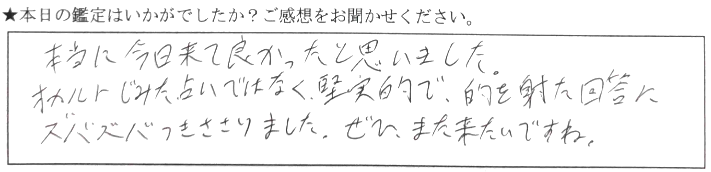 ★本日の鑑定はいかがでしたか？ご感想をお聞かせください。
本当に今日来て良かったと思いました。
オカルトじみた占いではなく、堅実的で、的を射た回答に
ズバズバつきささりました。ぜひ、また来たいですね。